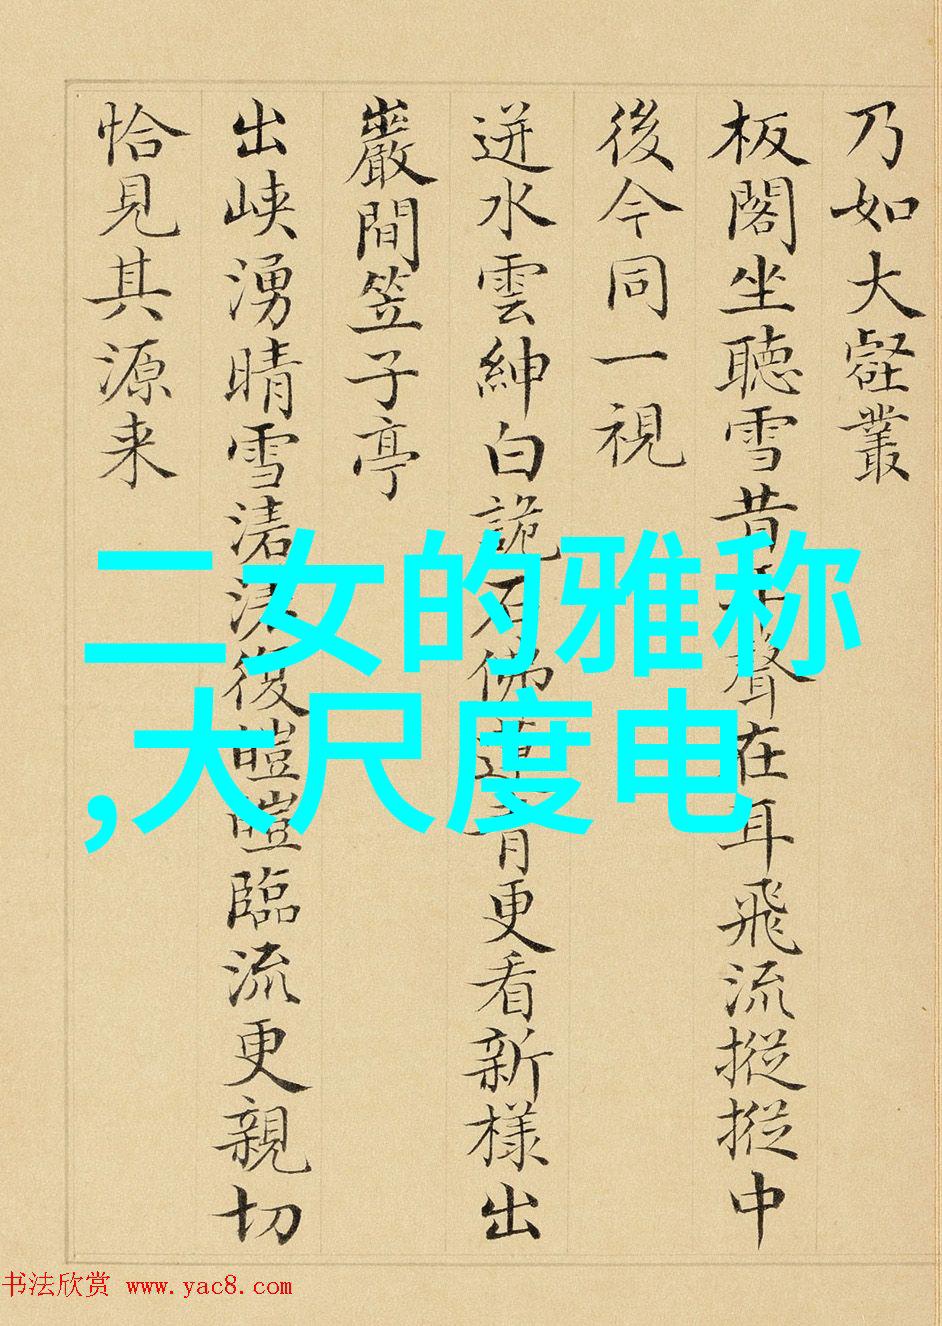 乃如大壑叢
板閣坐聽雪昔聲在耳飛流摐摐中
後今同一視
迸水雲紳白詭石佛蓮青更看新樣出
巖間笠子亭
出峽湧晴雪復皚皚臨流更親切
恰見其源来
二女的雅称
,大尺度电
书法欣赏 www.yac8.com